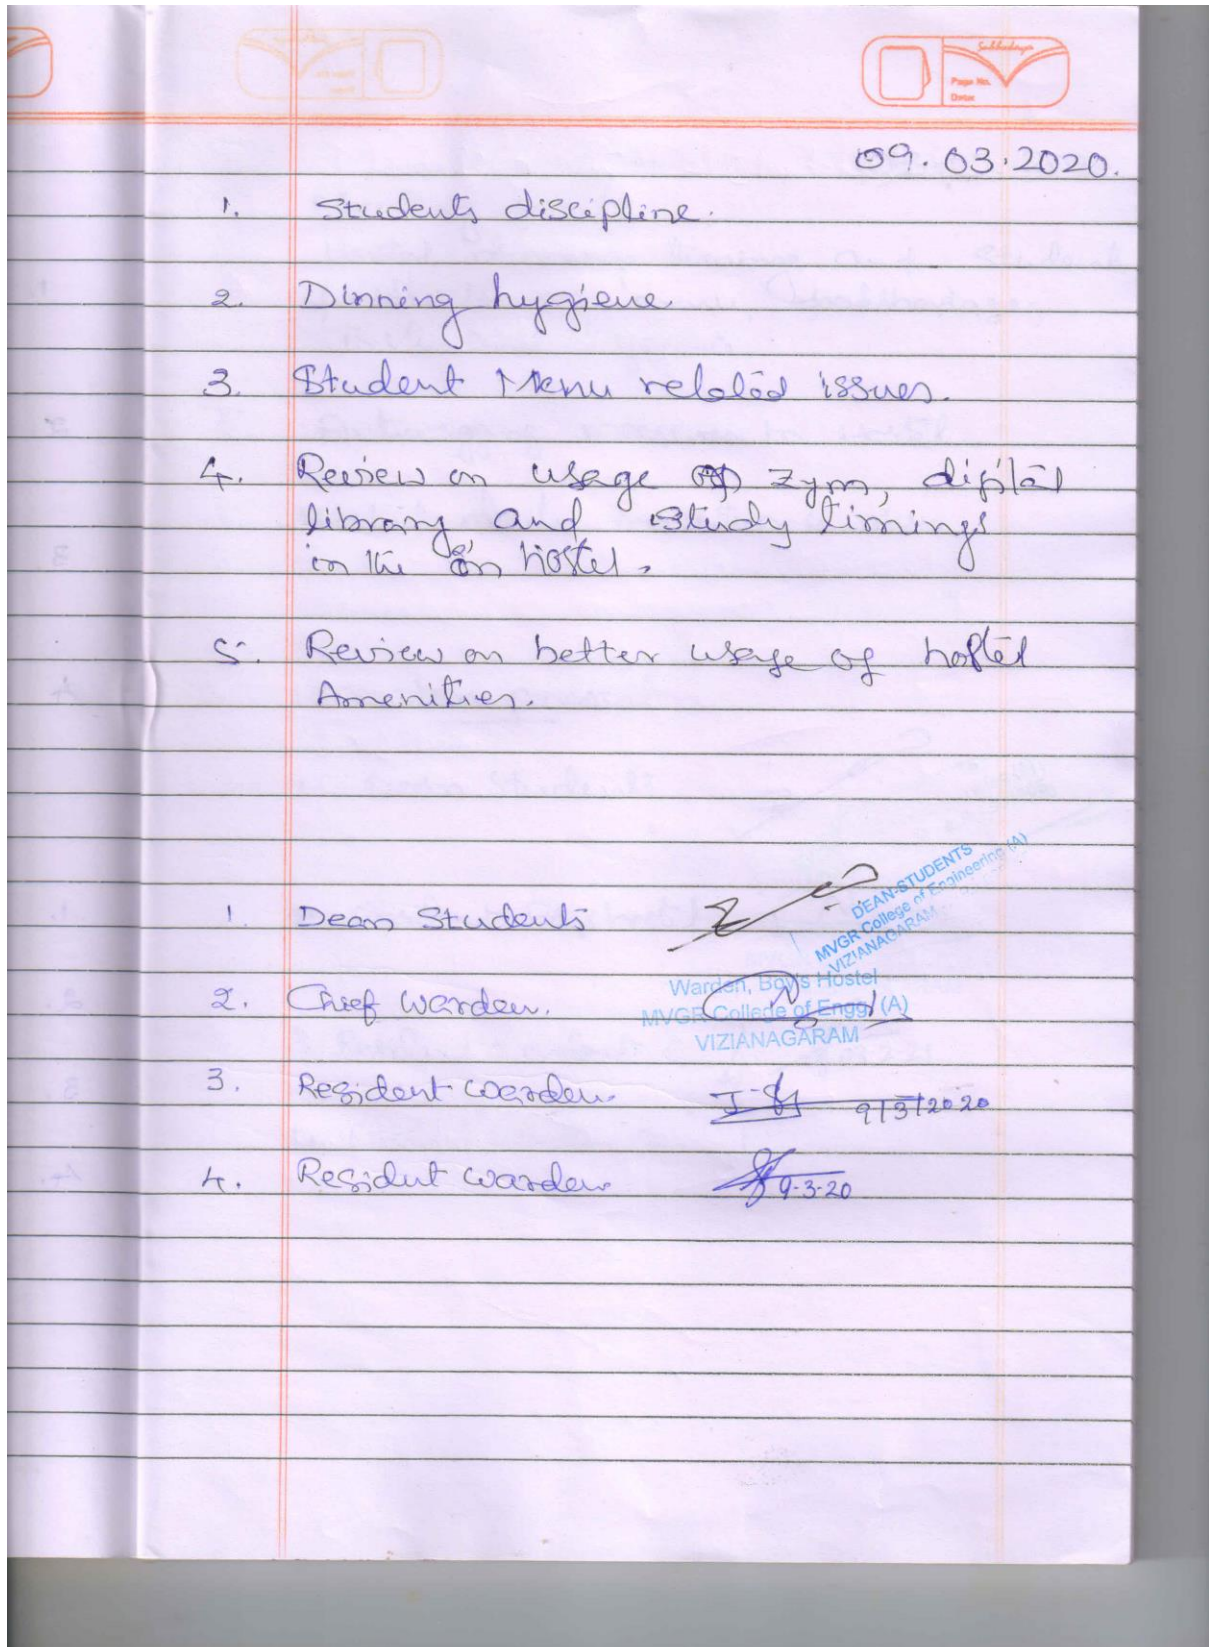 Page No.
Date
09.03.2020.
1. Students discipline.
2. Dinning hygiene.
3. Student Menu related issues.
4. Review on usage of zym, digital
library and study timings
in the hostel.
5. Review on better usage of hostel
Amenities.
DEAN-STUDENTS
MVGR College of Engineering (A)
VIZIANAGARAM
1. Dean Students
Warden, Boy's Hostel
2. Chief Warden.
MVGR College of Engg. (A)
VIZIANAGARAM
3. Resident Warden. 9/3/2020
4. Resident Warden 9-3-20